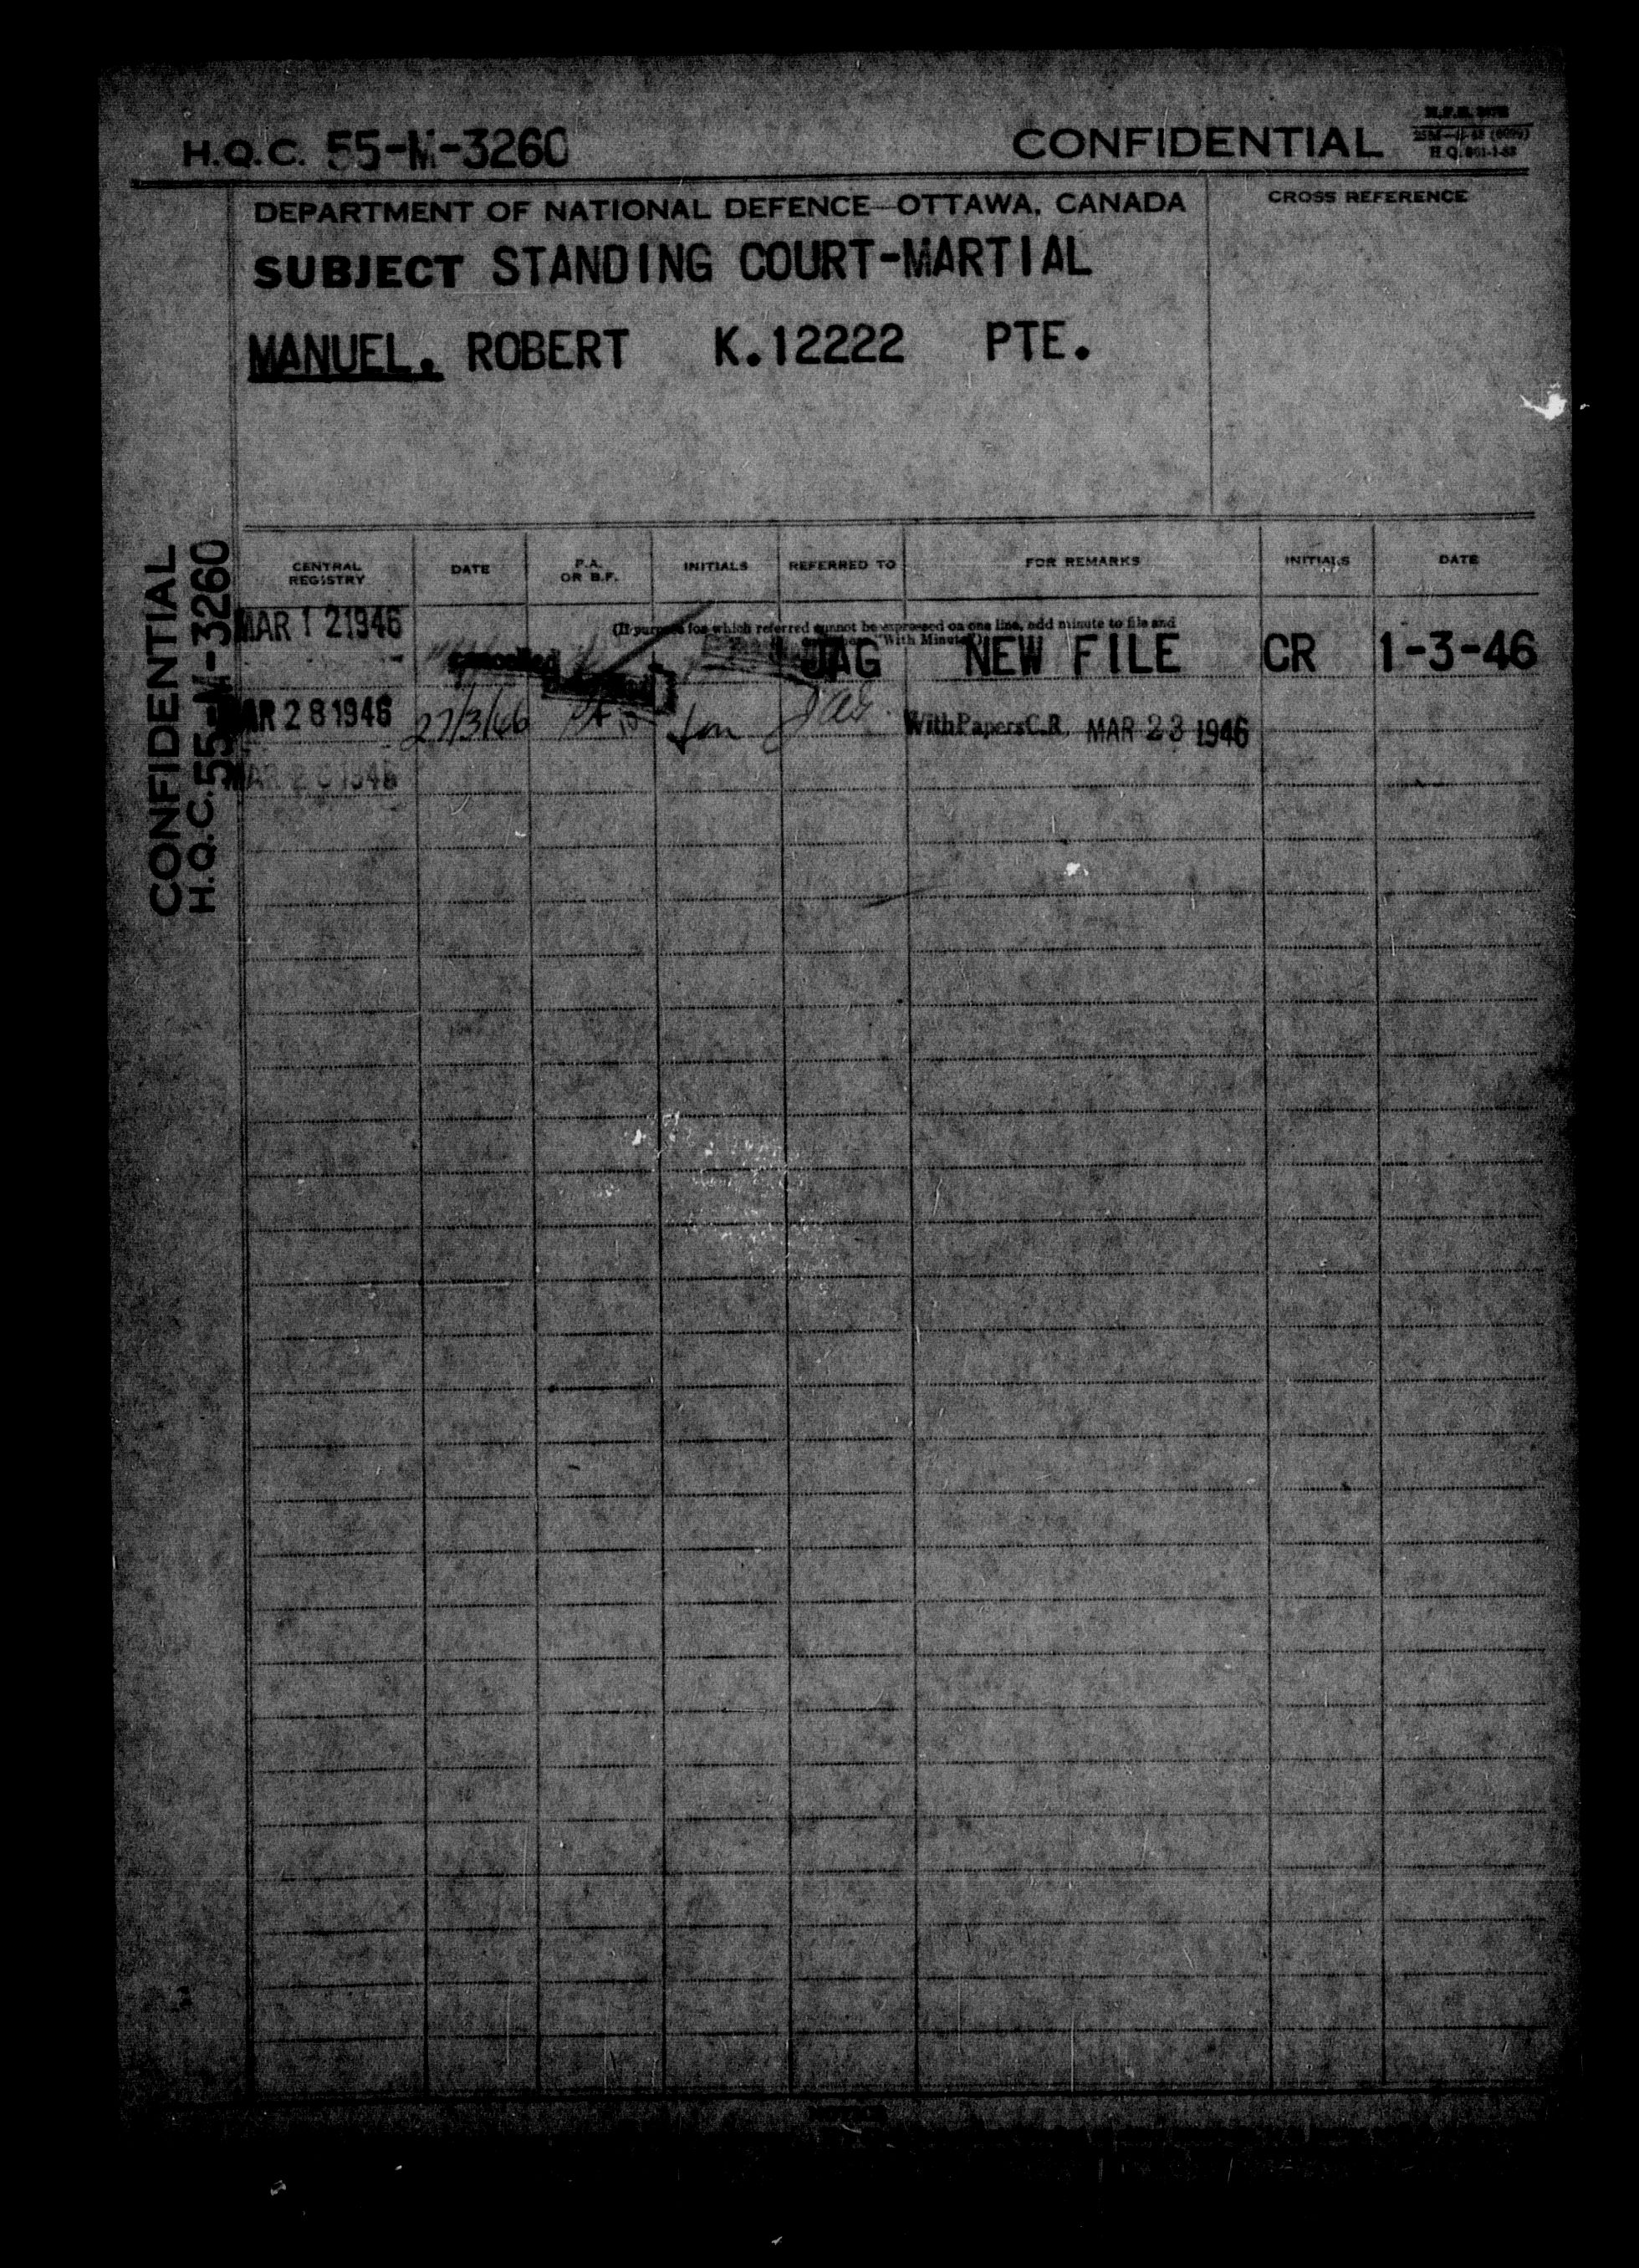 H.Q.C. 55-M-3260
CONFIDENTIAL
DEPARTMENT OF NATIONAL DEFENCE—OTTAWA, CANADA
CROSS REFERENCE
SUBJECT STANDING COURT-MARTIAL
MANUEL, ROBERT K.12222 PTE.
CONFIDENTIAL
H.Q.C. 55-M-3260
CENTRAL REGISTRY
DATE
P.A. OR B.F.
INITIALS
REFERRED TO
FOR REMARKS
INITIALS
DATE
(If purpose for which referred cannot be expressed on one line, add minute to file and
"With Minute")
MAR 12 1946
cancelled
JAG NEW FILE CR 1-3-46
MAR 28 1946 27/3/46 PA Jag. With Papers C.R. MAR 23 1946